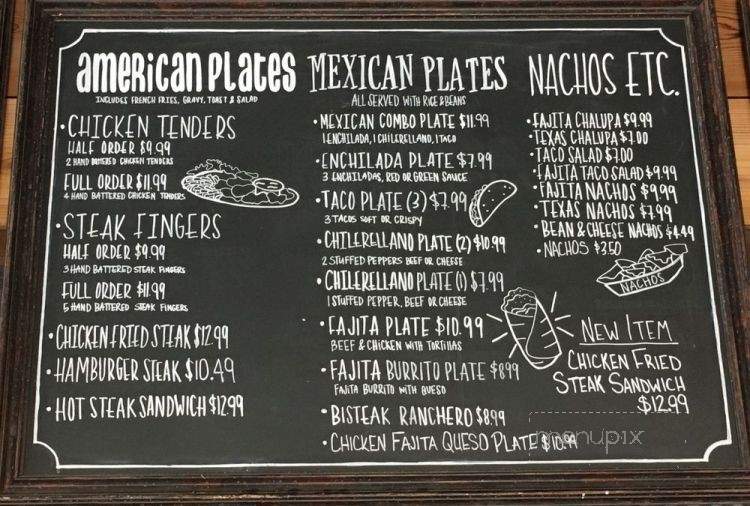 AMERICAN PLATES
INCLUDES FRENCH FRIES, GRAVY, TOAST & SALAD
• CHICKEN TENDERS
HALF ORDER $9.99
2 HAND BATTERED CHICKEN TENDERS
FULL ORDER $11.99
4 HAND BATTERED CHICKEN TENDERS
• STEAK FINGERS
HALF ORDER $9.99
3 HAND BATTERED STEAK FINGERS
FULL ORDER $11.99
5 HAND BATTERED STEAK FINGERS
• CHICKEN FRIED STEAK $12.99
• HAMBURGER STEAK $10.49
• HOT STEAK SANDWICH $12.99
MEXICAN PLATES
ALL SERVED WITH RICE & BEANS
• MEXICAN COMBO PLATE $11.99
1 ENCHILADA, 1 CHILERELLANO, 1 TACO
• ENCHILADA PLATE $7.99
3 ENCHILADAS, RED OR GREEN SAUCE
• TACO PLATE (3) $7.99
3 TACOS SOFT OR CRISPY
• CHILERELLANO PLATE (2) $10.99
2 STUFFED PEPPERS BEEF OR CHEESE
• CHILERELLANO PLATE (1) $7.99
1 STUFFED PEPPER, BEEF OR CHEESE
• FAJITA PLATE $10.99
BEEF & CHICKEN WITH TORTILLAS
• FAJITA BURRITO PLATE $8.99
FAJITA BURRITO WITH QUESO
• BISTEAK RANCHERO $8.99
• CHICKEN FAJITA QUESO PLATE $10.99
NACHOS ETC.
• FAJITA CHALUPA $9.99
• TEXAS CHALUPA $7.00
• TACO SALAD $7.00
• FAJITA TACO SALAD $9.99
• FAJITA NACHOS $9.99
• TEXAS NACHOS $7.99
• BEAN & CHEESE NACHOS $4.49
• NACHOS $3.50
NACHOS
NEW ITEM
CHICKEN FRIED
STEAK SANDWICH
$12.99
menupix